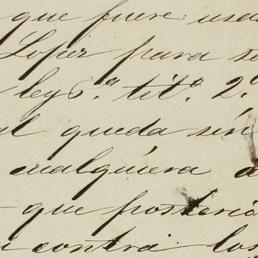 que fuere usa
Lopez para s
leys.ª tit.º 2.º
al queda sin
cualquiera a
que posterio
contra los